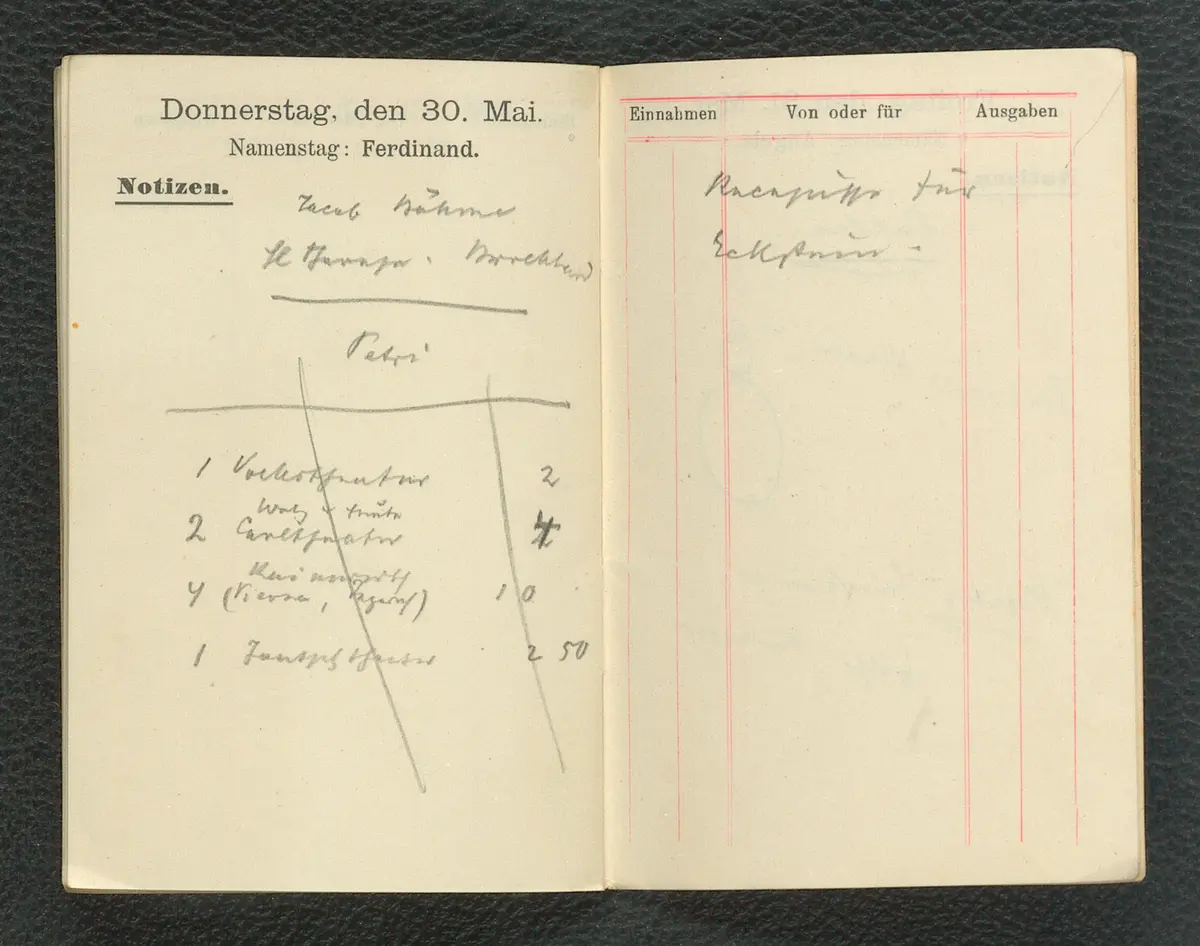 Donnerstag, den 30. Mai.
Namenstag: Ferdinand.
Notizen.
Jacob Böhme
Hl Theresa.
Petri
1 Volkstheater 2
2 Carltheater 4
4 10
1 theater 2 50
Einnahmen Von oder für Ausgaben
für
Eckstein